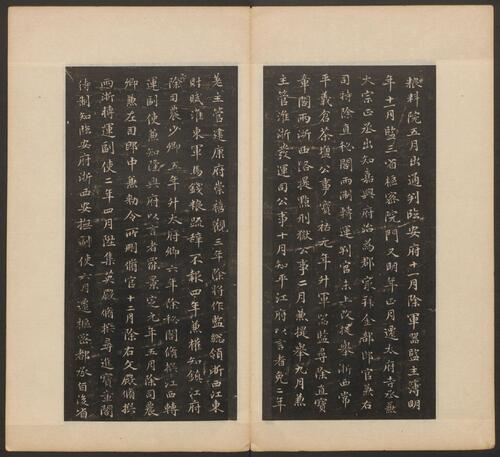 粮料院五月出通判臨安府十一月除軍器監主簿明
年十一月監三省樞密院門又明年正月遷太府寺丞兼
大宗正丞出知嘉興府治為都最拜金部郎官兼右
司特除直秘閣兩浙轉運判官未上改提舉浙西常
平義倉茶鹽公事寶祐元年升軍器監尋除直寶
章閣兩浙西路提點刑獄公事二月兼提舉九月兼
主管淮浙發運司公事十月知平江府以言者免二年
差主管建康府崇禧觀三年除將作監總領浙西江東
財賦淮東軍馬錢粮疏辞不報四年兼權知鎮江府
除司農少卿五年升太府卿六年除秘閣脩撰江西轉
運副使兼知隆興府以言者罷景定元年五月除司農
卿兼左司郎中兼勑令所刪脩官十二月除右文殿脩撰
兩浙轉運副使二年四月陞集英殿脩撰尋進寶章閣
待制知臨安府浙西安撫副使六月遷樞密都承旨復省